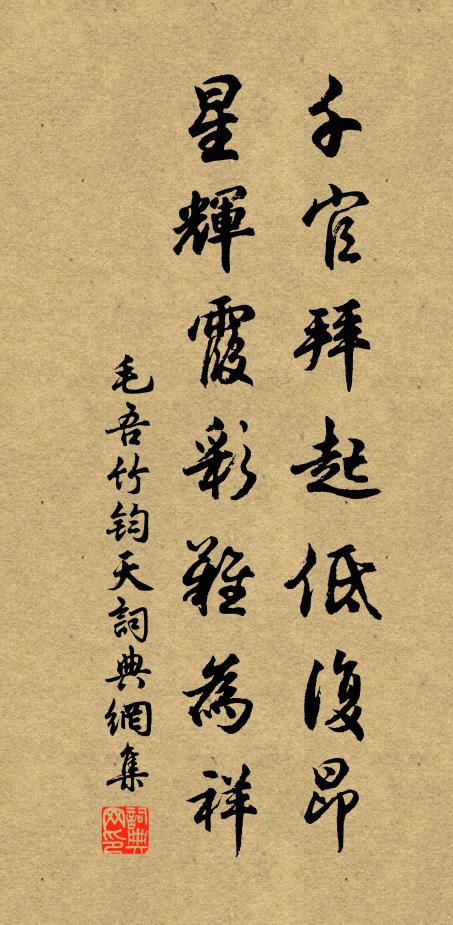 千官拜起低復昂
星輝霞彩難為祥
毛吾竹鈞天詞典網集
詞典网印